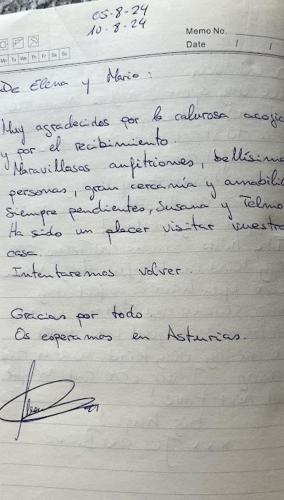 05-8-24
10-8-24
Memo No.
Mo Tu We Th Fr Sa Su
Date / /
De Elena y Mario:
Muy agradecidos por la calurosa acogi
y por el recibimiento.
Maravillosos anfitriones, bellísima
personas, gran cercanía y amabilid
Siempre pendientes, Susana y Telmo
Ha sido un placer visitar vuestra
casa.
Intentaremos volver.
Gracias por todo.
Os esperamos en Asturias.